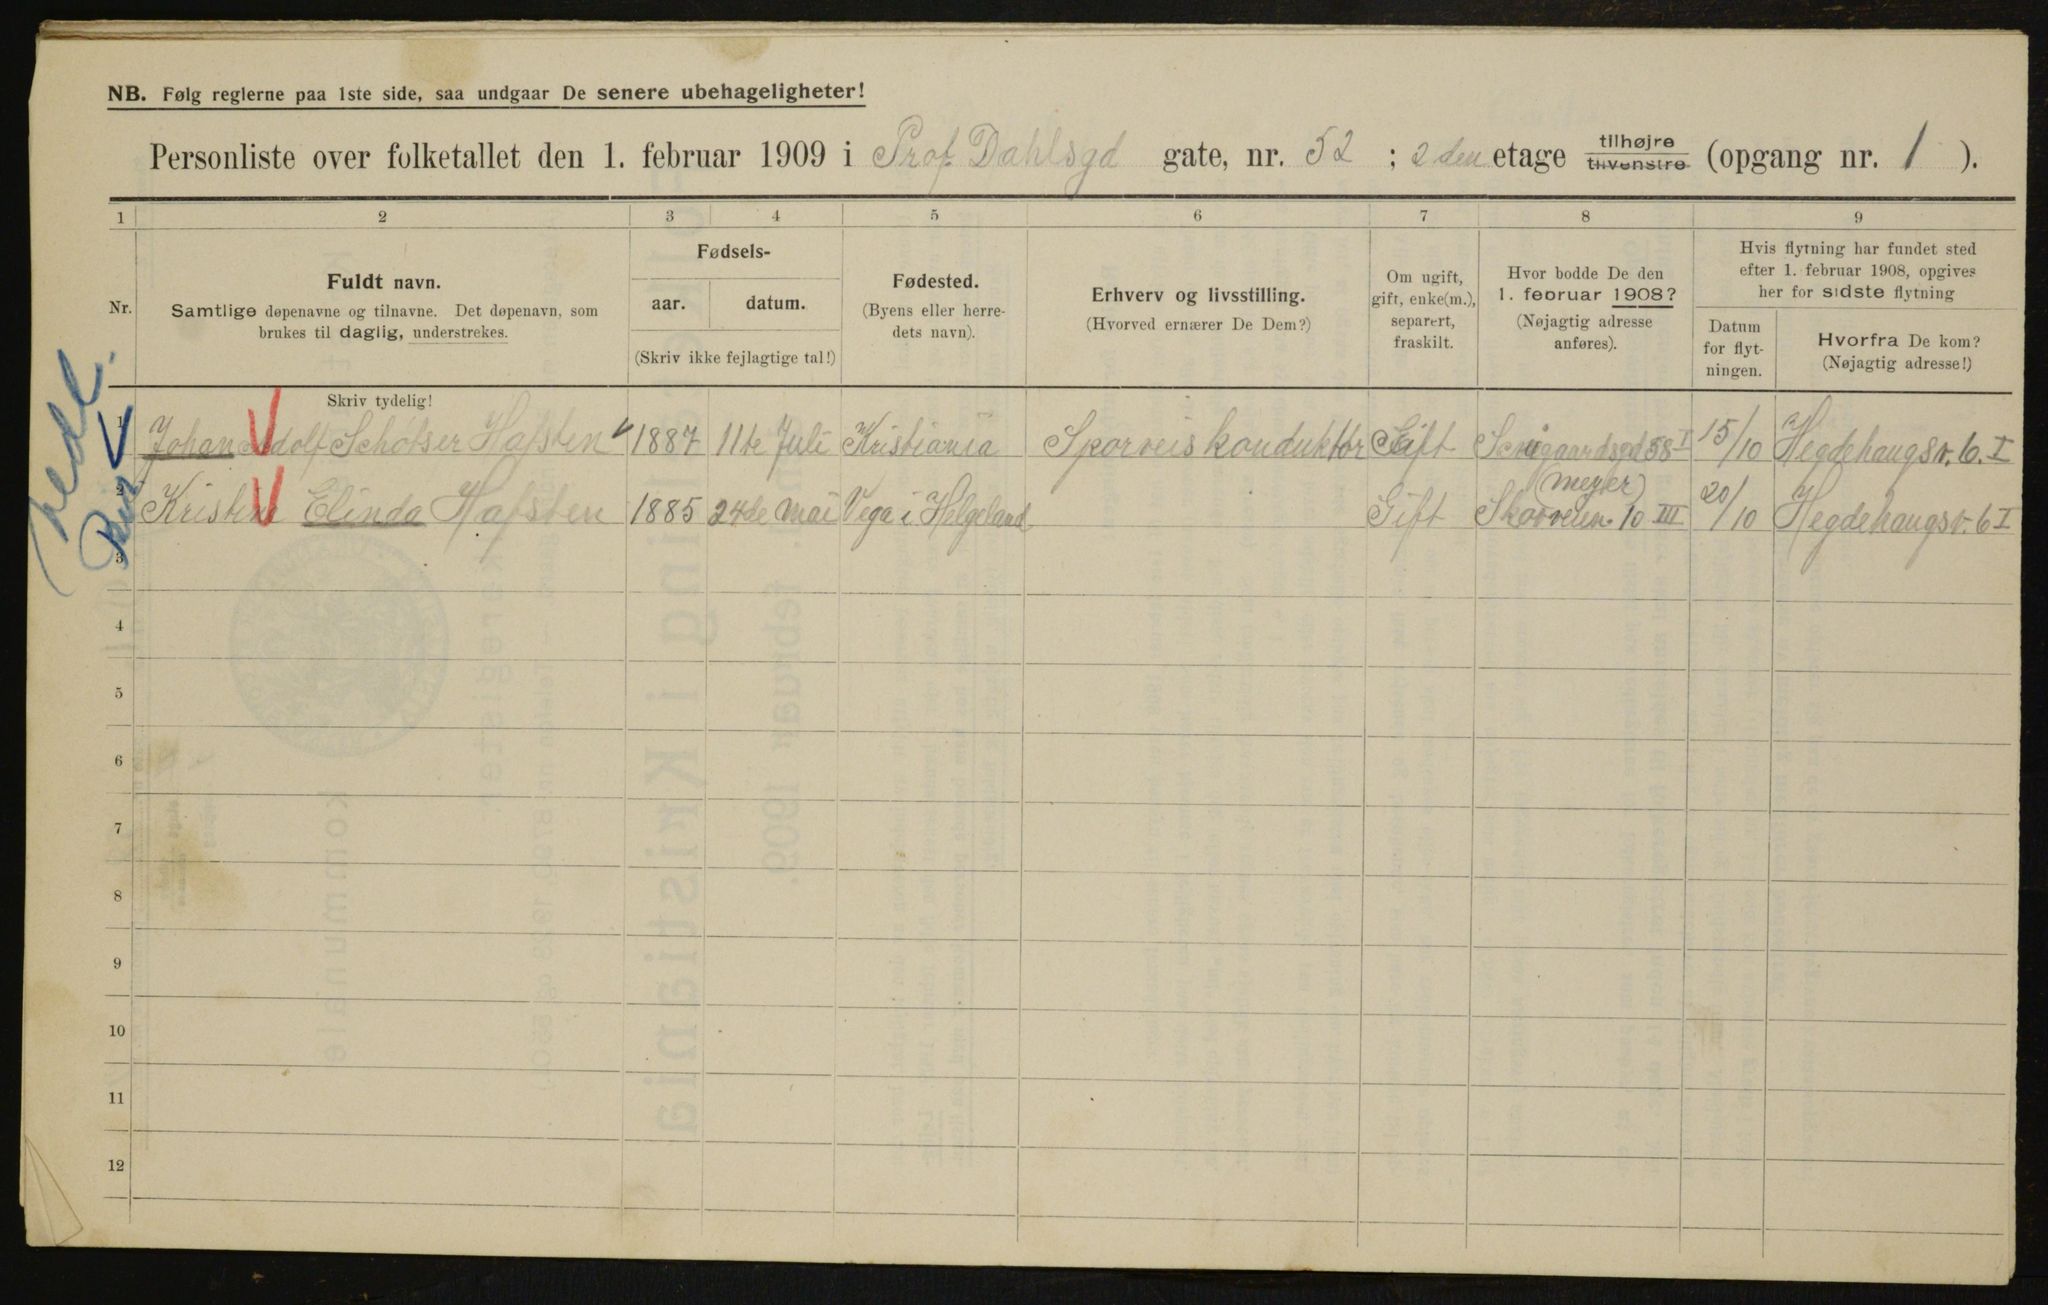 NB. Følg reglerne paa 1ste side, saa undgaar De senere ubehageligheter!
Personliste over folketallet den 1. februar 1909 i Prof Dahlsgd gate, nr. 52 ; 2 den etage tilhøjre tilvenstre (opgang nr. 1 ).
1 2 3 4 5 6 7 8 9
Nr.
Fuldt navn.
Samtlige døpenavne og tilnavne. Det døpenavn, som
brukes til daglig, understrekes.
Fødsels-
aar. datum.
(Skriv ikke fejlagtige tal!)
Fødested.
(Byens eller herre-
dets navn).
Erhverv og livsstilling.
(Hvorved ernærer De Dem?)
Om ugift,
gift, enke(m.),
separert,
fraskilt.
Hvor bodde De den
1. februar 1908?
(Nøjagtig adresse
anføres).
Hvis flytning har fundet sted
efter 1. februar 1908, opgives
her for sidste flytning
Datum
for flyt-
ningen.
Hvorfra De kom?
(Nøjagtig adresse!)
Skriv tydelig!
1 Johan Adolf Schøtser Hafsten 1887 11te Juli Kristiania Sporveiskonduktør Gift 58 I 15/10 Hegdehaugsv. 6. I
(meyer)
2 Kristine Elinda Hafsten 1885 24de Mai Vega i Helgeland Gift Skovveien 10 III 20/10 Hegdehaugsv. 6 I
3
4
5
6
7
8
9
10
11
12